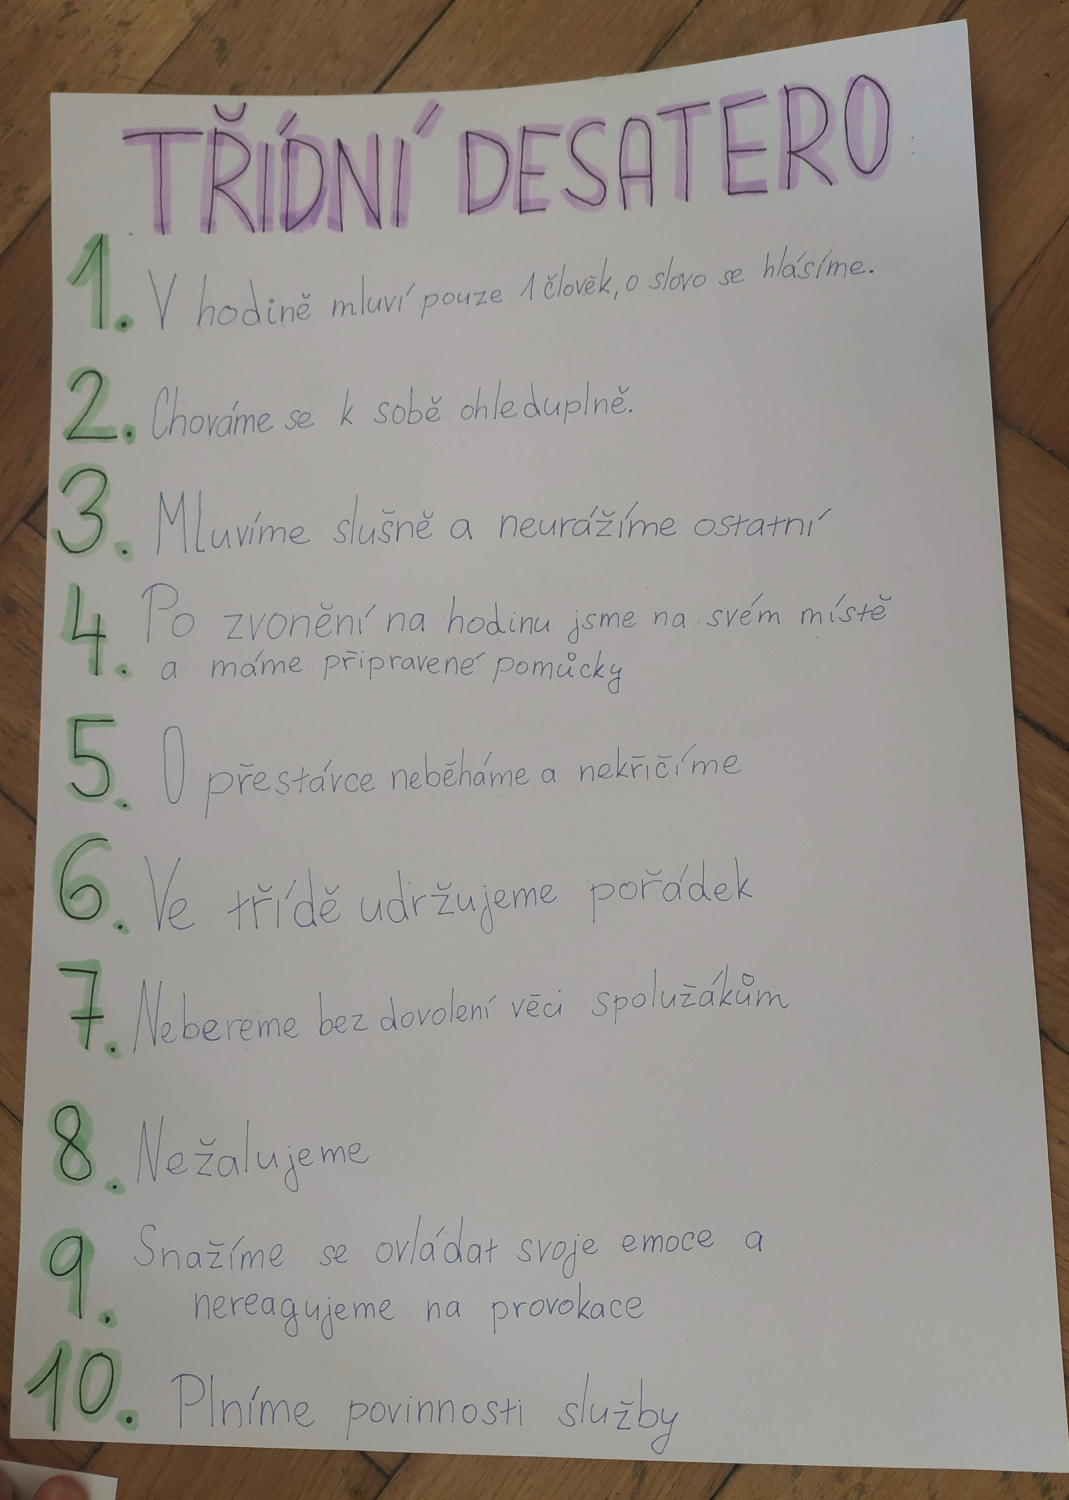 TŘÍDNÍ DESATERO
1. V hodině mluví pouze 1 člověk, o slovo se hlásíme.
2. Chováme se k sobě ohleduplně.
3. Mluvíme slušně a neurážíme ostatní
4. Po zvonění na hodinu jsme na svém místě
a máme připravené pomůcky
5. O přestávce neběháme a nekřičíme
6. Ve třídě udržujeme pořádek
7. Nebereme bez dovolení věci spolužákům
8. Nežalujeme
9. Snažíme se ovládat svoje emoce a
nereagujeme na provokace
10. Plníme povinnosti služby